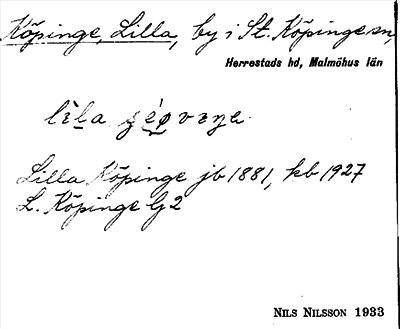 Köpinge, Lilla, by i St. Köpinge sn,
Herrestads hd, Malmöhus län
Lilla Köpinge jb 1881, kb 1927
L. Köpinge G 2
NILS NILSSON 1933